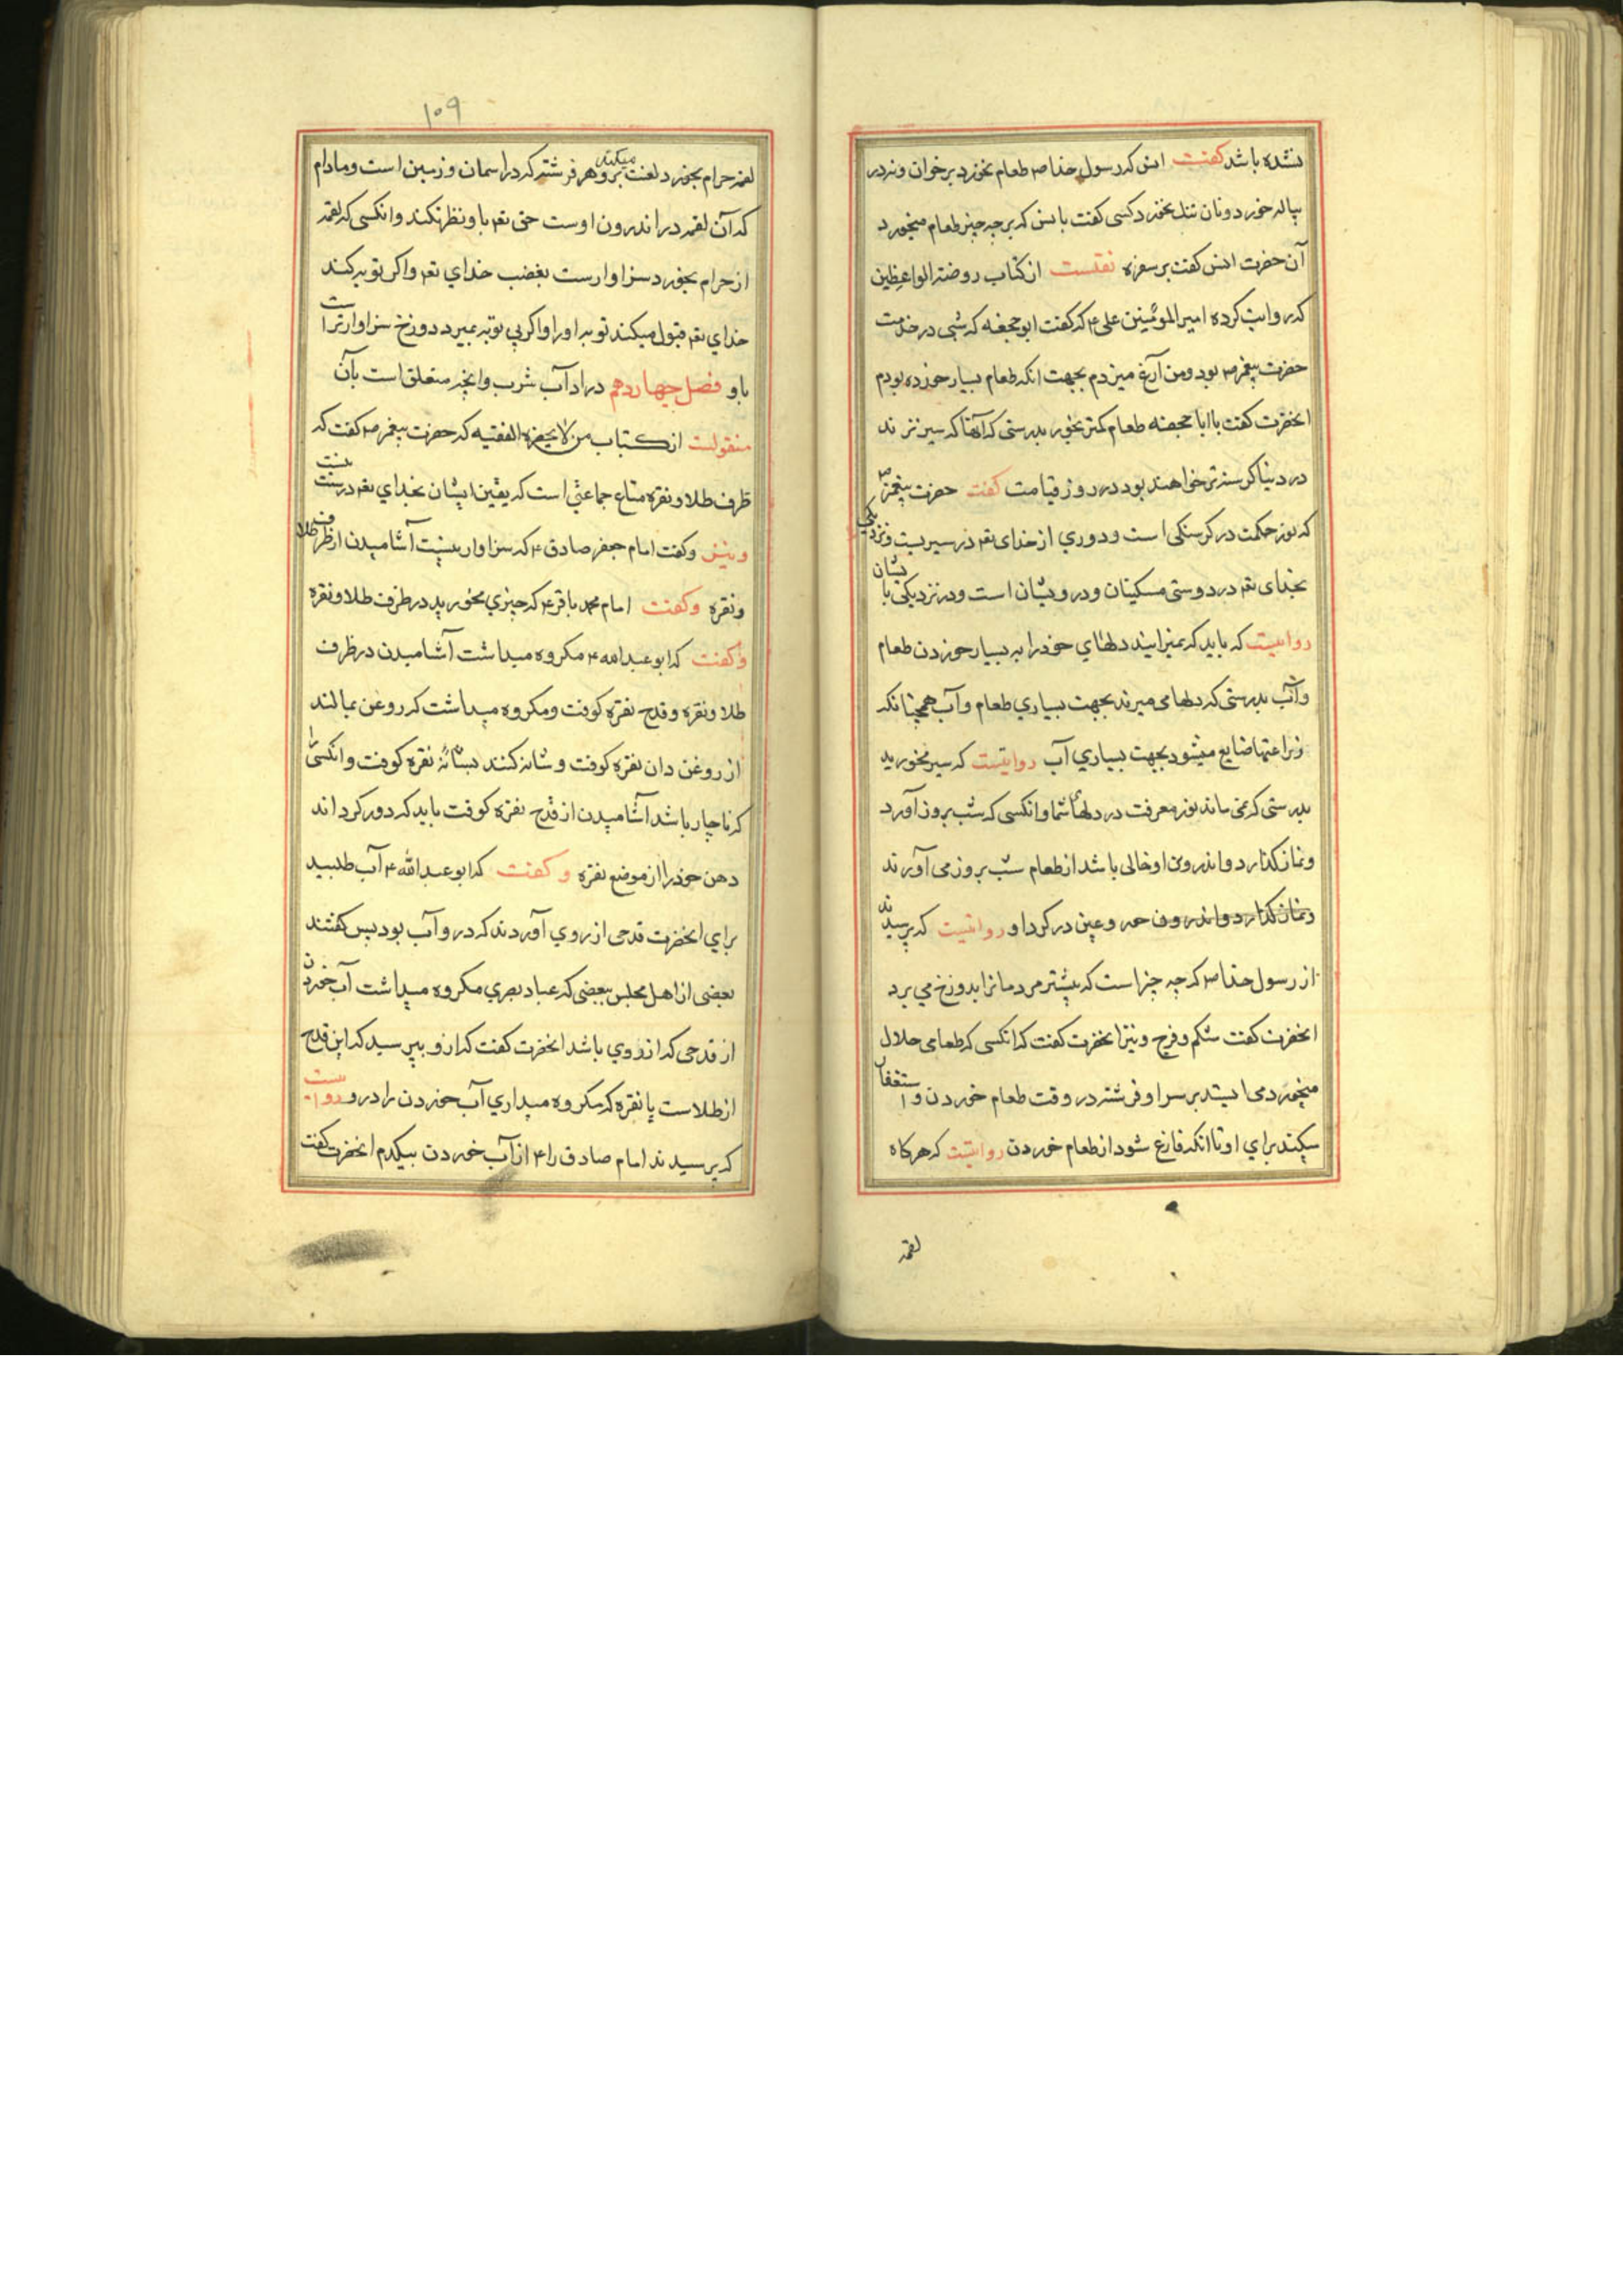 نشده باشد کفت انس که رسول خدا ص طعام نخورد بر خوان و نه در
پیاله خورد و نان تنک نخورد کسی کفت بانس که بر چه چیز طعام میخورد
آن حضرت انس کفت بر سفره نقلست از کتاب روضة الواعظین
که روایت کرده امیر المومنین علی ۴ که کفت ابو جحفه که شبی در خدمت
حضرت پیغمبر ص بود و من آرغ میزدم بجهت انکه طعام بسیار خورده بودم
انحضرت کفت یا ابا جحفه طعام کمتر بخور بدرستی که آنها که سیرترند
در دنیا کرسنه تر خواهند بود در روز قیامت کفت حضرت پیغمبر ص
که نور حکمت در کرسنکی است و دوری از خدای تعم در سیریست و نزدیکی
بخدای تعم در دوستی مسکینان و درویشان است و در نزدیکی با یشان
روایست که باید که نمیرانید دلهای خود را به بسیار خوردن طعام
وآب بدرستی که دلها می میرند بجهت بسیاری طعام و آب همچنانکه
زراعتها ضایع میشود بجهت بسیاری آب روایتست که سیر مخورید
بدرستی که نمی ماند نور معرفت در دلهای شما و انکسی که شب بروز آورد
و نماز کذارد و اندرون او خالی باشد از طعام شب بروز می آورند
و نماز کذارد و اندرون حور و عین در کرد او روایتست که پرسیدند
از رسول خدا ص که چه چیز است که بیشتر مردمانرا بدوزخ می برد
انحضرت کفت شکم و فرج و نیز انحضرت کفت که انکسی که طعامی حلال
میخورد می ایستد بر سر او فرشته در وقت طعام خوردن و استغفار
میکند برای او تا انکه فارغ شود از طعام خوردن روایتست که هرکاه
لقمه
۱۰۹
لقمه حرام بخورد لعنت میکند برو هر فرشته که در اسمان و زمین است و مادام
که آن لقمه در اندرون اوست حق تعم باو نظر نکند و انکسی که لقمه
از حرام بخورد سزاوارست بغضب خدای تعم و اکر توبه کند
خدای تعم قبول میکند توبه او را و اکر بی توبه بمیرد دوزخ سزاوارترست
باو فصل چهاردهم در اداب شرب وانچه متعلق است بآن
منقولست از کتاب من لا یحضره الفقیه که حضرت پیغمبر ص کفت که
ظرف طلا و نقره متاع جماعتی است که یقین ایشان بخدای تعم درست نیست
و نیز و کفت امام جعفر صادق ۴ که سزاوار نیست آشامیدن از ظرف طلا
و نقره وکفت امام محمد باقر ۴ که چیزی مخورید در ظرف طلا و نقره
وکفت که ابو عبد الله ۴ مکروه میداشت آشامیدن در ظرف
طلا و نقره و قدح نقره کوفت و مکروه میداشت که روغن بمالند
از روغن دان نقره کوفت و شانه کنند بشانهٔ نقره کوفت و انکسی را
که ناچار باشد آشامیدن از قدح نقره کوفت باید که دور کرداند
دهن خود را از موضع نقره وکفت که ابو عبد الله ۴ آب طلبید
برای انحضرت قدحی از روی آوردند که در و آب بود پس کفتند
بعضی از اهل مجلس ببعضی که عباد بصری مکروه میداشت آب خوردن
از قدحی که از روی باشد انحضرت کفت که ازو بپرسید که این قدح
از طلاست یا نقره که مکروه میداری آب خوردن را درو روایست
که پرسیدند امام صادق را ۴ از آب خوردن بیکدم انحضرت کفت